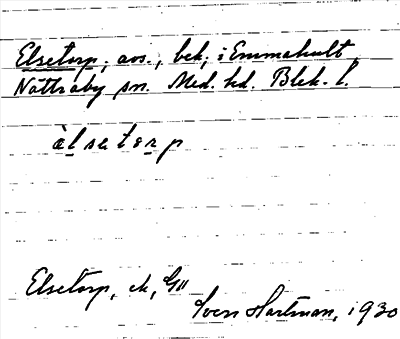 Elsetorp, avs., bek. i Emmahult,
Nättraby sn. Med. hd. Blek. l.
àlsetɛrp
Elsetorp, ek, GV
Sven Hartman, 1930